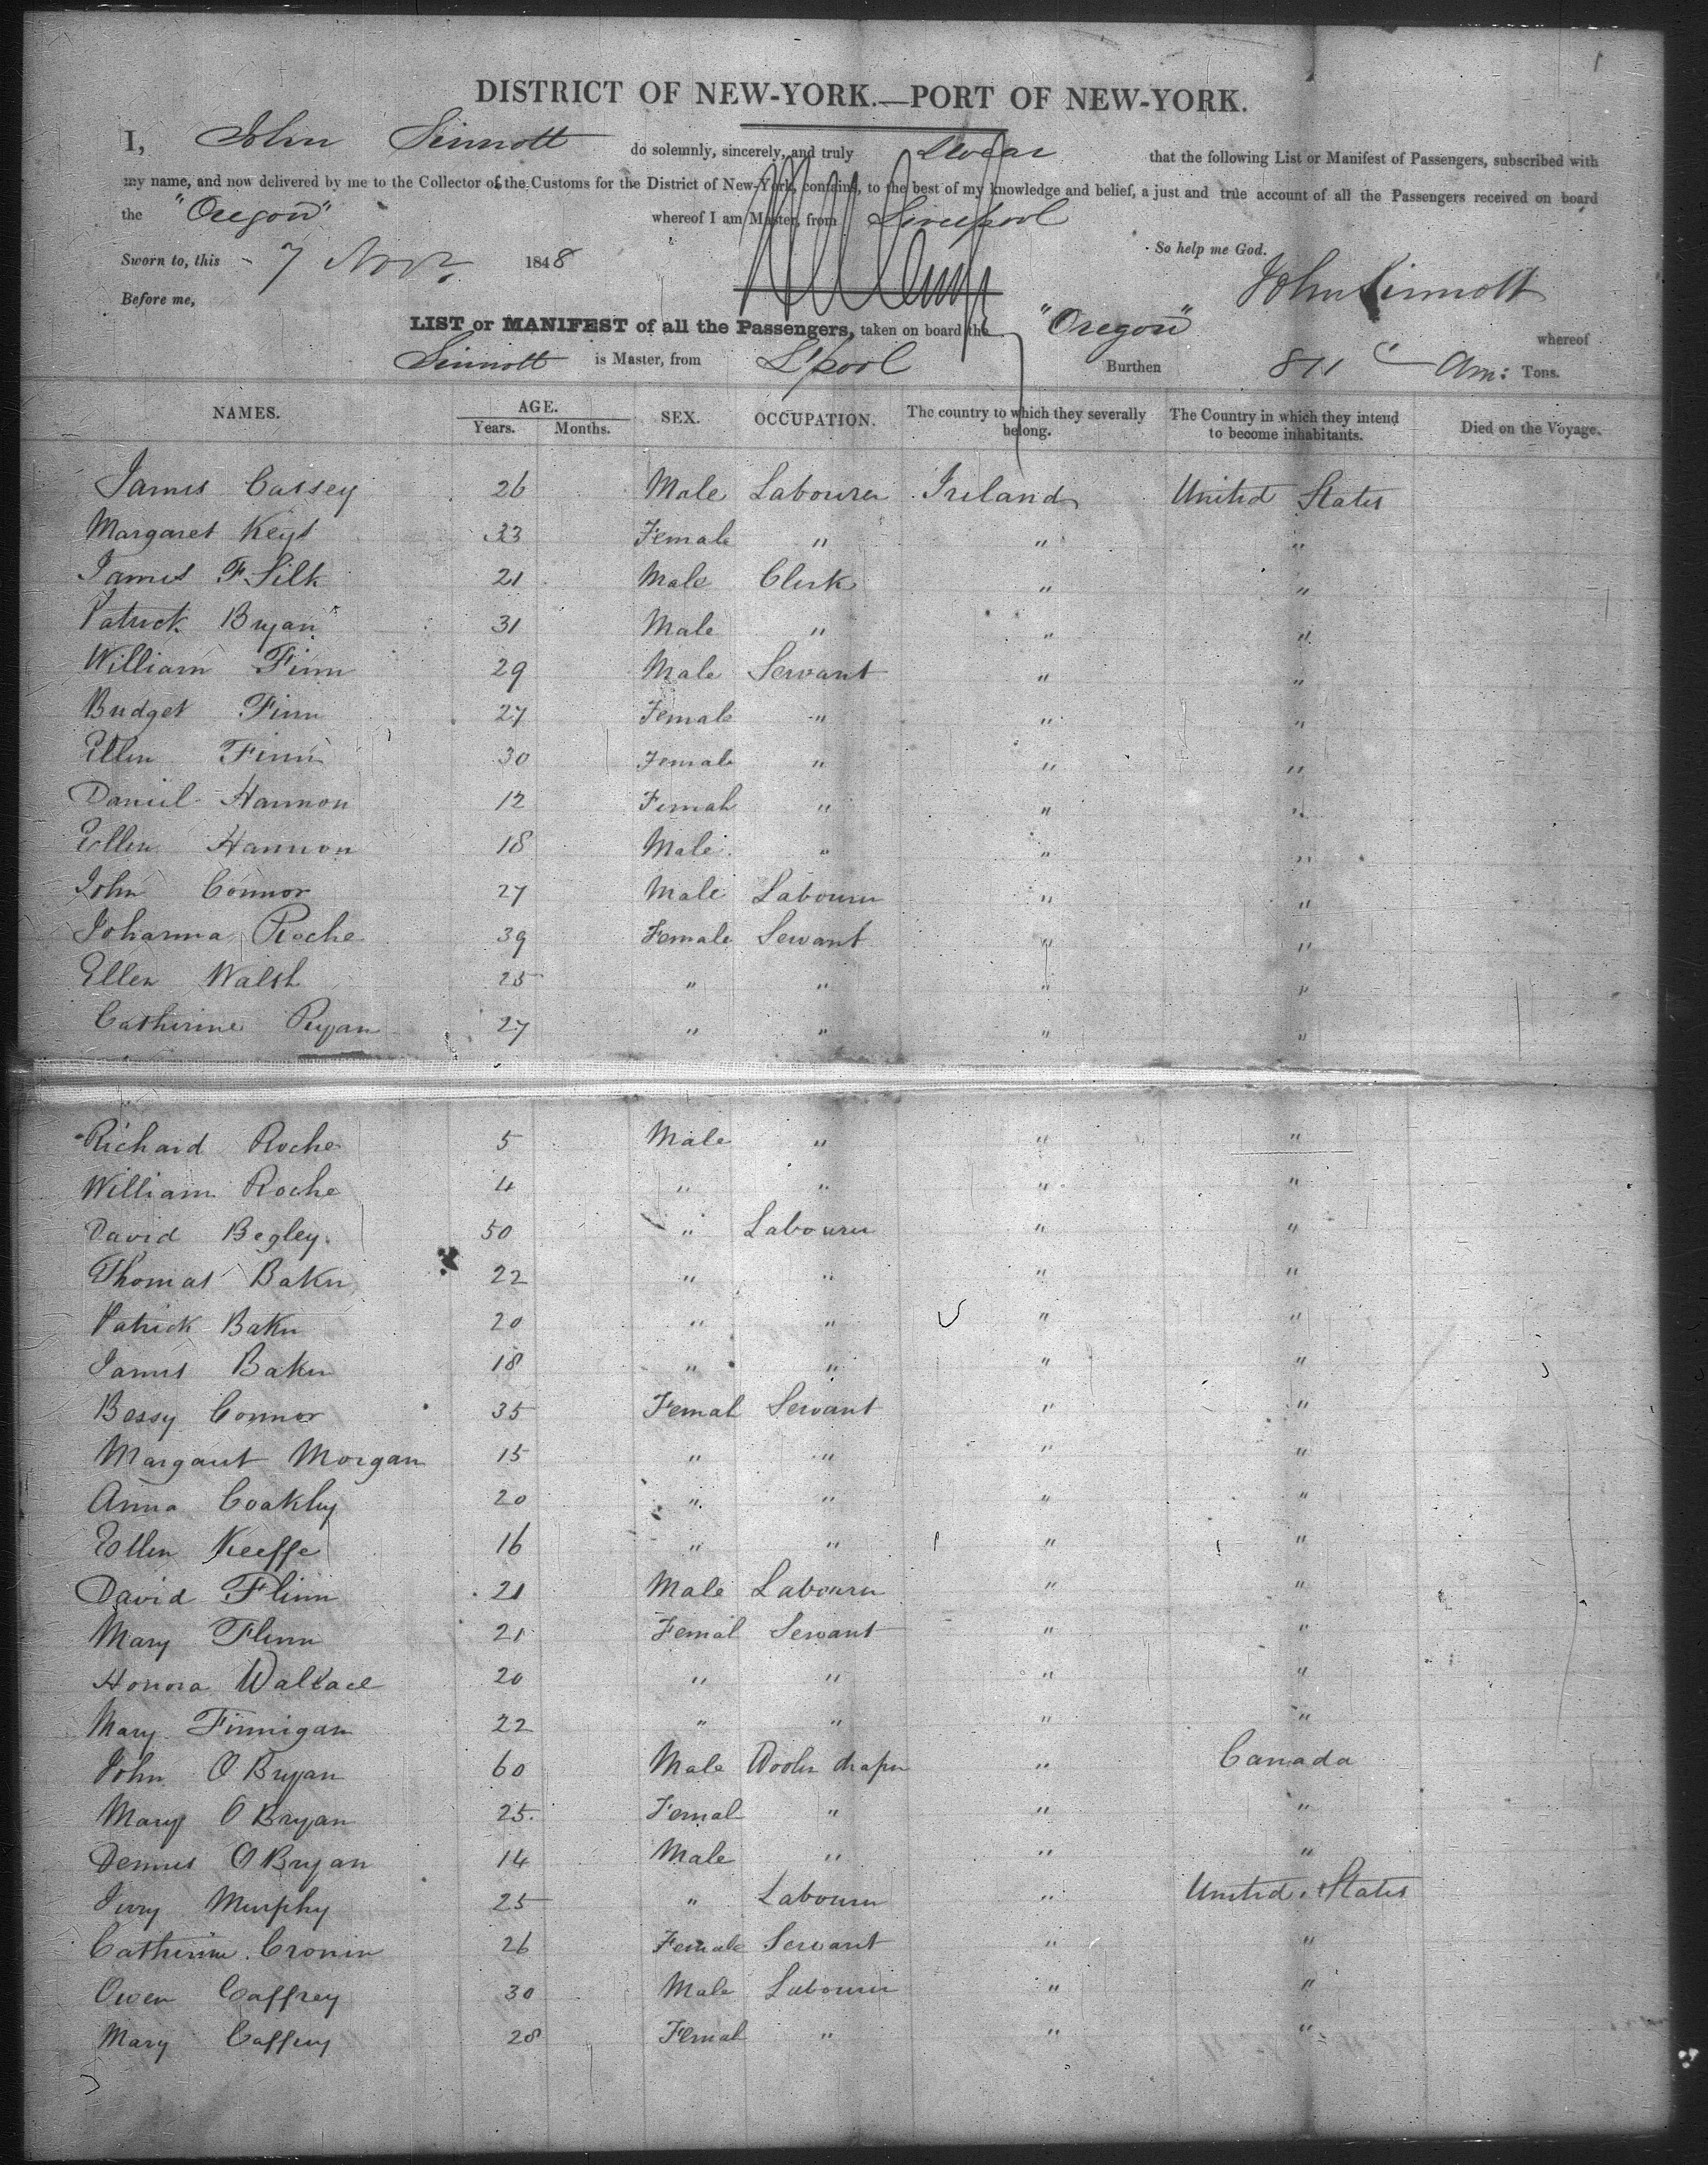 1
DISTRICT OF NEW-YORK.—PORT OF NEW-YORK.
I, John Sinnott do solemnly, sincerely, and truly Swear that the following List or Manifest of Passengers, subscribed with
my name, and now delivered by me to the Collector of the Customs for the District of New-York, contains, to the best of my knowledge and belief, a just and true account of all the Passengers received on board
the "Oregon" whereof I am Master, from Liverpool
So help me God.
Sworn to, this 7 Novr. 1848
John Sinnott
Before me,
LIST or MANIFEST of all the Passengers, taken on board the "Oregon" whereof
Sinnott is Master, from L'pool Burthen 811 Am: Tons.
NAMES. AGE. Years. Months. SEX. OCCUPATION. The country to which they severally belong. The Country in which they intend to become inhabitants. Died on the Voyage.
James Cassey 26 Male Labourer Ireland United States
Margaret Keys 33 Female " " "
James F Silk 21 Male Clerk " "
Patrick Bryan 31 Male " " "
William Finn 29 Male Servant " "
Bridget Finn 27 Female " " "
Ellen Finn 30 Female " " "
Daniel Hannon 12 Female " " "
Ellen Hannon 18 Male " " "
John Connor 27 Male Labourer " "
Johanna Roche 39 Female Servant " "
Ellen Walsh 25 " " " "
Catherine Ryan 27 " " " "
Richard Roche 5 Male " " "
William Roche 4 " " " "
David Begley 50 " Labourer " "
Thomas Baker 22 " " " "
Patrick Baker 20 " " " "
James Baker 18 " " " "
Bessy Connor 35 Femal Servant " "
Margaret Morgan 15 " " " "
Anna Coakley 20 " " " "
Ellen Keeffe 16 " " " "
David Flinn 21 Male Labourer " "
Mary Flinn 21 Femal Servant " "
Honora Wallace 20 " " " "
Mary Finnigan 22 " " " "
John O Bryan 60 Male Woolen draper " Canada
Mary O Bryan 25 Femal " " "
Dennis O Bryan 14 Male " " "
Jerry Murphy 25 " Labourer " United States
Catherine Cronin 26 Female Servant " "
Owen Caffrey 30 Male Labourer " "
Mary Caffrey 28 Femal " " "